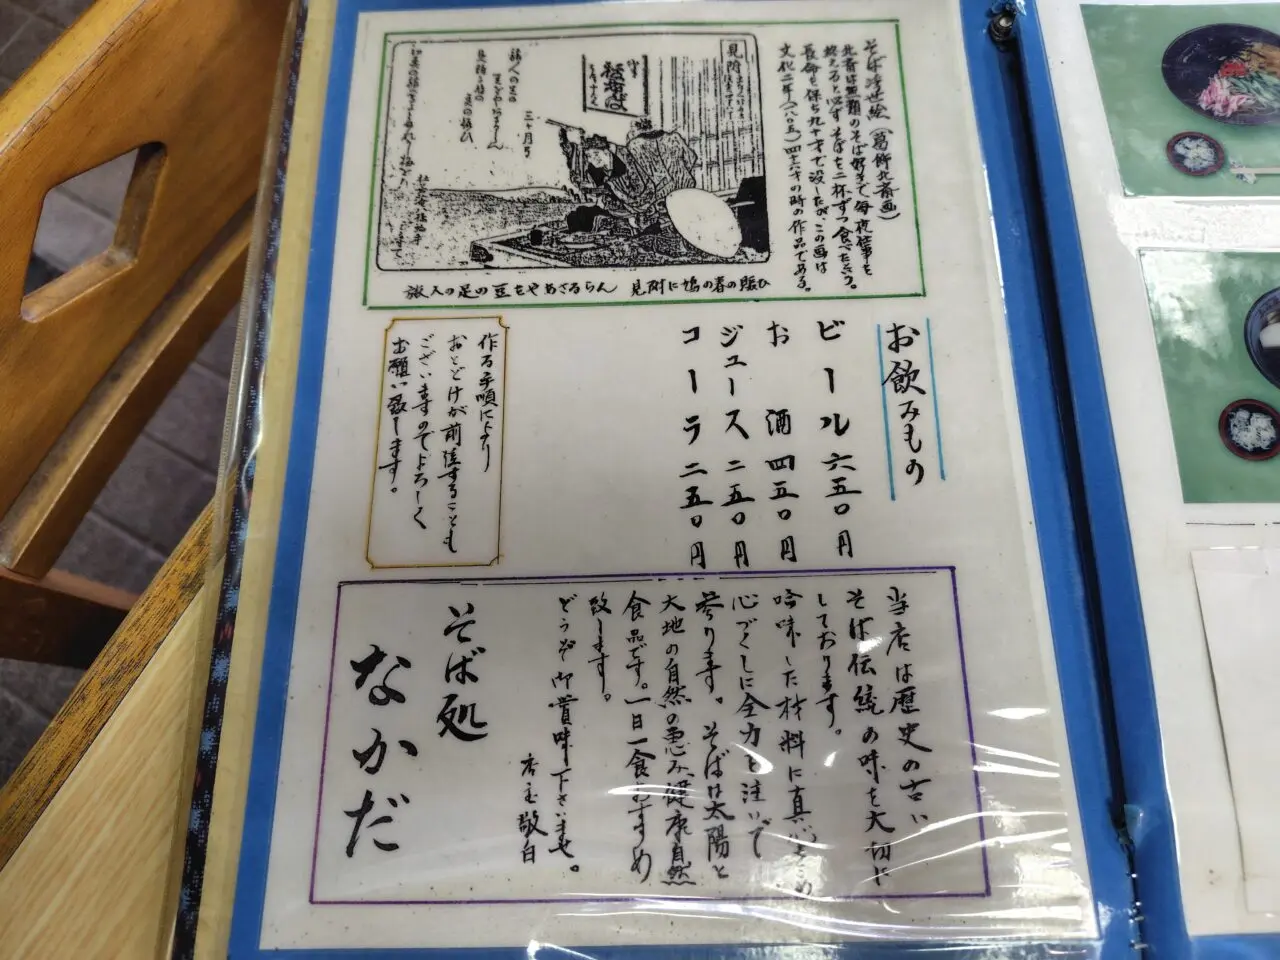 そば浮世絵(葛飾北斎画)
北斎は無類のそば好きで毎夜仕事を
終えると必ずそばを二杯ずつ食べたという。
長命を保ち九十才で没したが、この画は
文化二年(一八〇五)四十六才の時の作品である。
見附
三ヶ月
旅人の足の豆をやめさるらん 見附に鳩の春の賑ひ
お飲みもの
ビール 六五〇円
お酒 四五〇円
ジュース 二五〇円
コーラ 二五〇円
作る手順により
おとどけが前後することも
ございますのでよろしく
お願い致します。
当店は歴史の古い
そば伝統の味を大切に
しております。
吟味した材料に真心をこめ
心づくしに全力を注いで
参ります。そばは太陽と
大地の自然の恵み、健康自然
食品です。一日一食おすすめ
致します。
どうぞ御賞味下さいませ。
店主敬白
そば処
なかだ